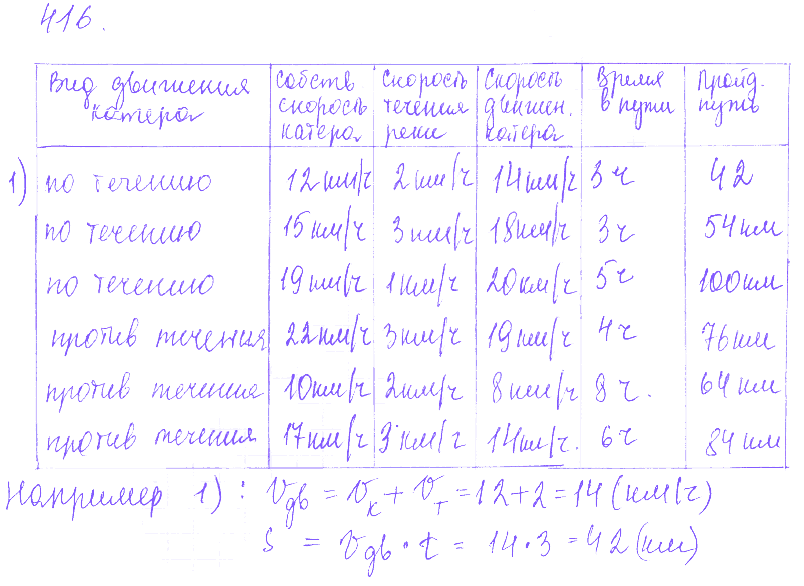 416.
Вид движения катера | Собств скорость катера | Скорость течения реки | Скорость движен. катера | Время в пути | Пройд. путь
1) по течению | 12 км/ч | 2 км/ч | 14 км/ч | 3 ч | 42
по течению | 15 км/ч | 3 км/ч | 18 км/ч | 3 ч | 54 км
по течению | 19 км/ч | 1 км/ч | 20 км/ч | 5 ч | 100 км
против течения | 22 км/ч | 3 км/ч | 19 км/ч | 4 ч | 76 км
против течения | 10 км/ч | 2 км/ч | 8 км/ч | 8 ч. | 64 км
против течения | 17 км/ч | 3 км/ч | 14 км/ч. | 6 ч | 84 км
Например 1) : Vдв = Vк + Vт = 12 + 2 = 14 (км/ч)
S = Vдв · t = 14 · 3 = 42 (км)